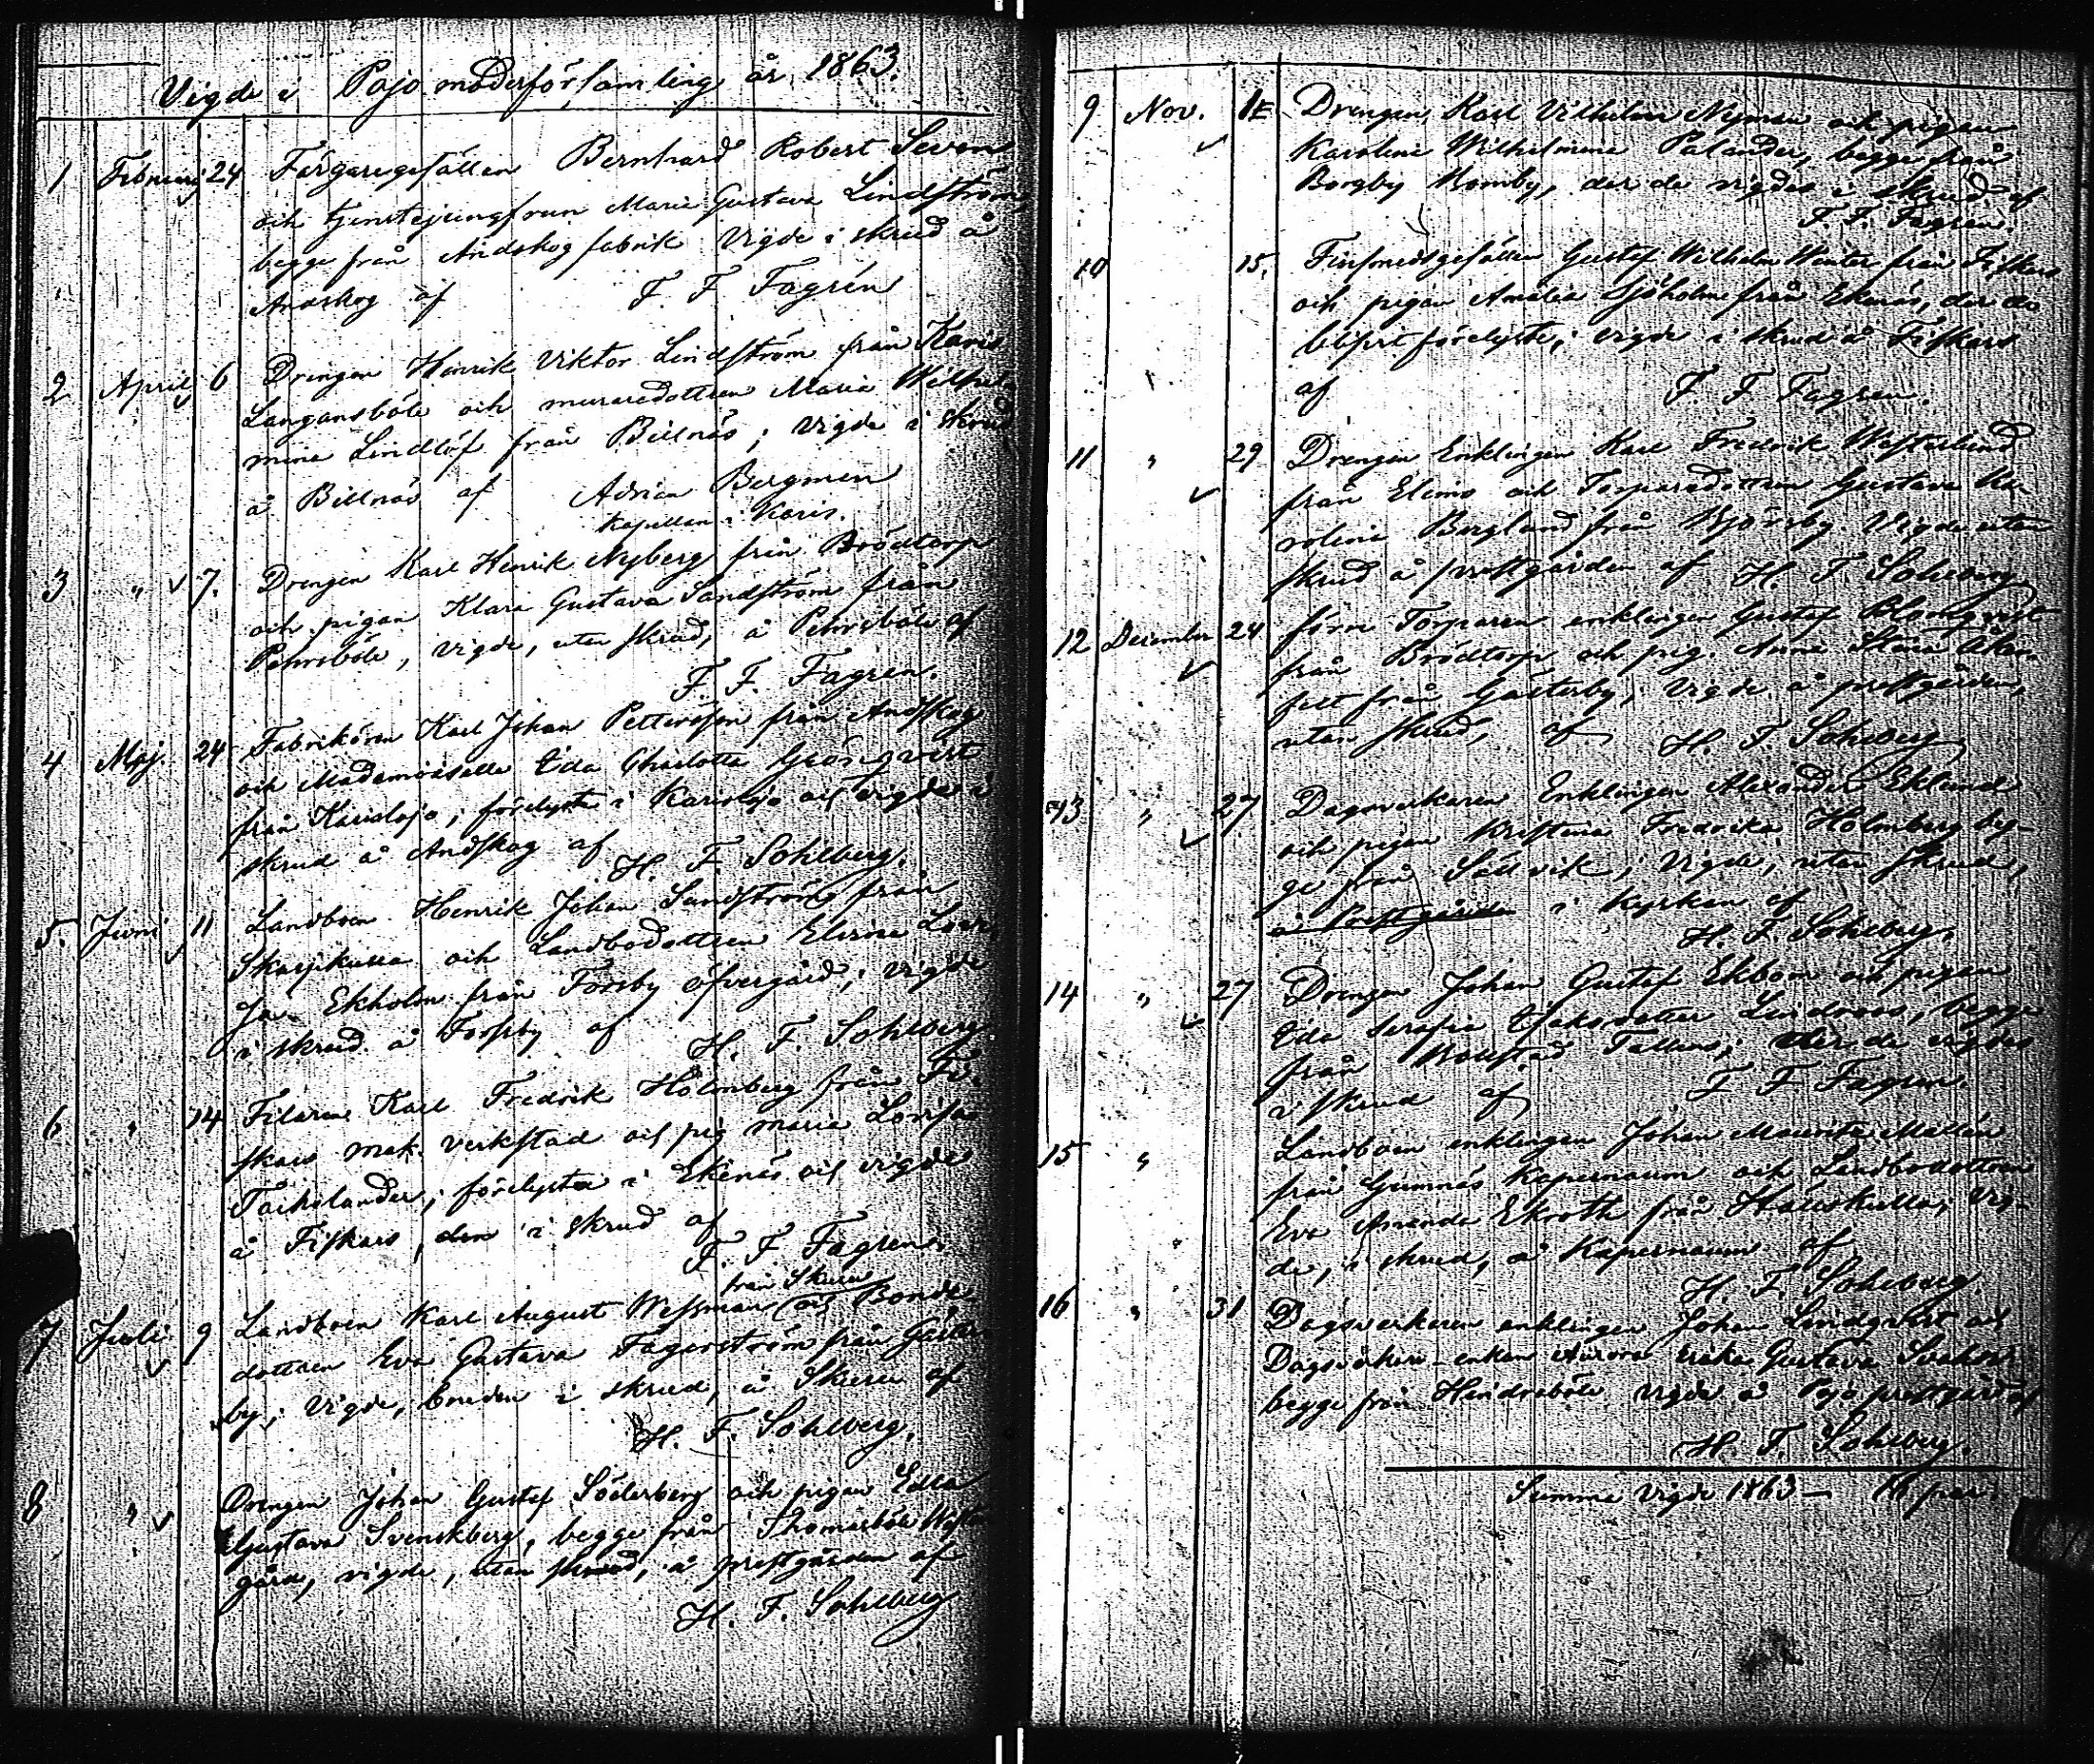 Vigde i Pojo moderförsamling år 1863.
1 Februarj 24 Färgaregesällen Bernhard Robert Sevon
och tjenstejungfrun Maria Gustava Lindström,
begge från Andskog fabrik Vigde i skrud å
Andskog af F. F. Fagrén
2 April 6 Drengen Henrik Viktor Lindström från Karis
Langansböle och muraredottren Maria Wilhel-
mina Lindlöf från Billnäs; Vigde i skrud
å Billnäs af Adrian Bergman
Kapellan i Karis.
3 " 7. Drengen Karl Henrik Nyberg från Brödtorp
och pigan Klara Gustava Sandström från
Pehrsböle, vigde, utan skrud, å Pehrsböle af
F. F. Fagren.
4 Maj. 24 Fabrikören Karl Johan Pettersson från Andskog
och Mademoiselle Eda Charlotta Grönqvist
från Karislojo; förelysta i Karislojo och vigde i
skrud å Andskog af H. F. Sohlberg.
5. Juni 11 Landboen Henrik Johan Sandström från
Skarpkulla och Landbodottren Elisina Lovi-
sa Ekholm från Forsby öfvergård; vigde
i skrud å Forssby af H. F. Sohlberg
6 " 14 Filaren Karl Fredrik Holmberg från Fi-
skars mek. verkstad och pig Maria Lovisa
förelysta i Ekenäs och vigde
å Fiskars, den i skrud af
F. F. Fagren.
från Skuru
7 Juli 9 Landboen Karl August Wessman och Bonde-
dottren Eva Gustava Fagerström från Gäster-
by; Vigde, bruden i skrud, å Skuru af
H. F. Sohlberg.
8 " Drengen Johan Gustaf Söderberg och pigan Edla
Gustava Svenskberg, begge från Thomasböle Wester
gård, vigde, utan skrud, å prestgården af
H. F. Sohlberg
9 Nov. 1 Drengen Karl Vilhelm Nyman och pigan
Karolina Wilhelmina Palander, begge från
Borgby Romby, der de vigdes i skrud af
F. F. Fagren.
10 15. Finsmedsgesällen Gustaf Wilhelm Winter från Fiskars
och pigan Amalia Sjöholm från Ekenäs, der de
blifvit förelyste; vigde i skrud å Fiskars
af F. F. Fagren.
11 " 29 Drengen Enklingen Karl Fredrik Westerlund
från Elimo och Torparedottren Gustava Ka-
rolina Berglund från Björsby. Vigde utan
skrud å prestgården af H. F. Sohlberg
12 December 24 förra Torparen enklingen Gustaf Blomqvist
från Brödtorp och pig. Anna Stina Åker-
felt från Gästerby; Vigde å prestgården,
utan skrud, af H. F. Sohlberg
13 " 27 Dagsverkaren Enklingen Alexander Eklund
och pigan Kristina Fredrika Holmberg beg-
ge från Sällvik; Vigde, utan skrud,
å Prestgården i Kyrkan af
H. F. Sohlberg.
14 " 27 Drengen Johan Gustaf Ekbom och pigan
Eda Serafia Isaksdotter Lindroos, begge
från Tallmo; der de vigdes
i skrud af F. F. Fagren.
15 " Landboen enklingen Johan Mauritz Malén
från Gumnäs Kapernaum och Landbodottren
Eva Amanda Ekroth från Hällskulla; Vig-
de, i skrud, å Kapernaum af
H. F. Sohlberg.
16 " 31 Dagsverkaren enklingen Johan Lindqvist och
Dagsverkare-enkan Aurora Erika Gustava
begge från Hindrsböle vigde å Pojo prestgård af
H. F. Sohlberg.
Summa Vigde 1863 — 16 par